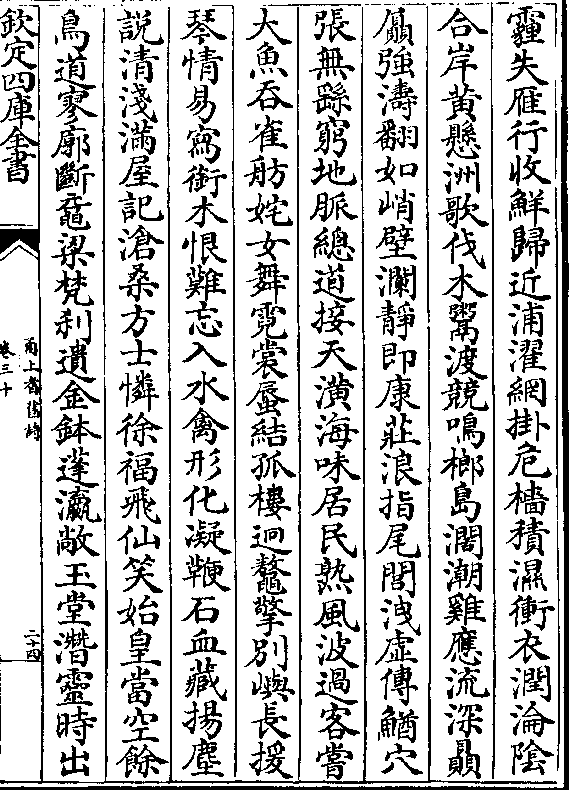 霾失雁行收鮮歸近浦濯網掛危檣積濕衝衣潤淪陰
合岸黄懸洲歌伐木鬻渡競鳴榔島濶潮雞應流深贔
屭強濤翻如峭壁瀾靜即康莊浪指尾閭洩虚傳鰌穴
張無繇窮地脈總道接天潢海味居民熟風波過客嘗
大魚吞雀舫姹女舞霓裳蜃結孤樓迥鼇擎別嶼長援
琴情易寫銜木恨難忘入水禽形化凝鞭石血藏揚塵
説清淺滿屋記滄桑方士憐徐福飛仙笑始皇當空餘
鳥道寥廓斷黿梁梵刹遺金鉢蓬瀛敞玉堂潛靈時出
欽定四庫全書
甬上耆舊詩
卷三十
二十四